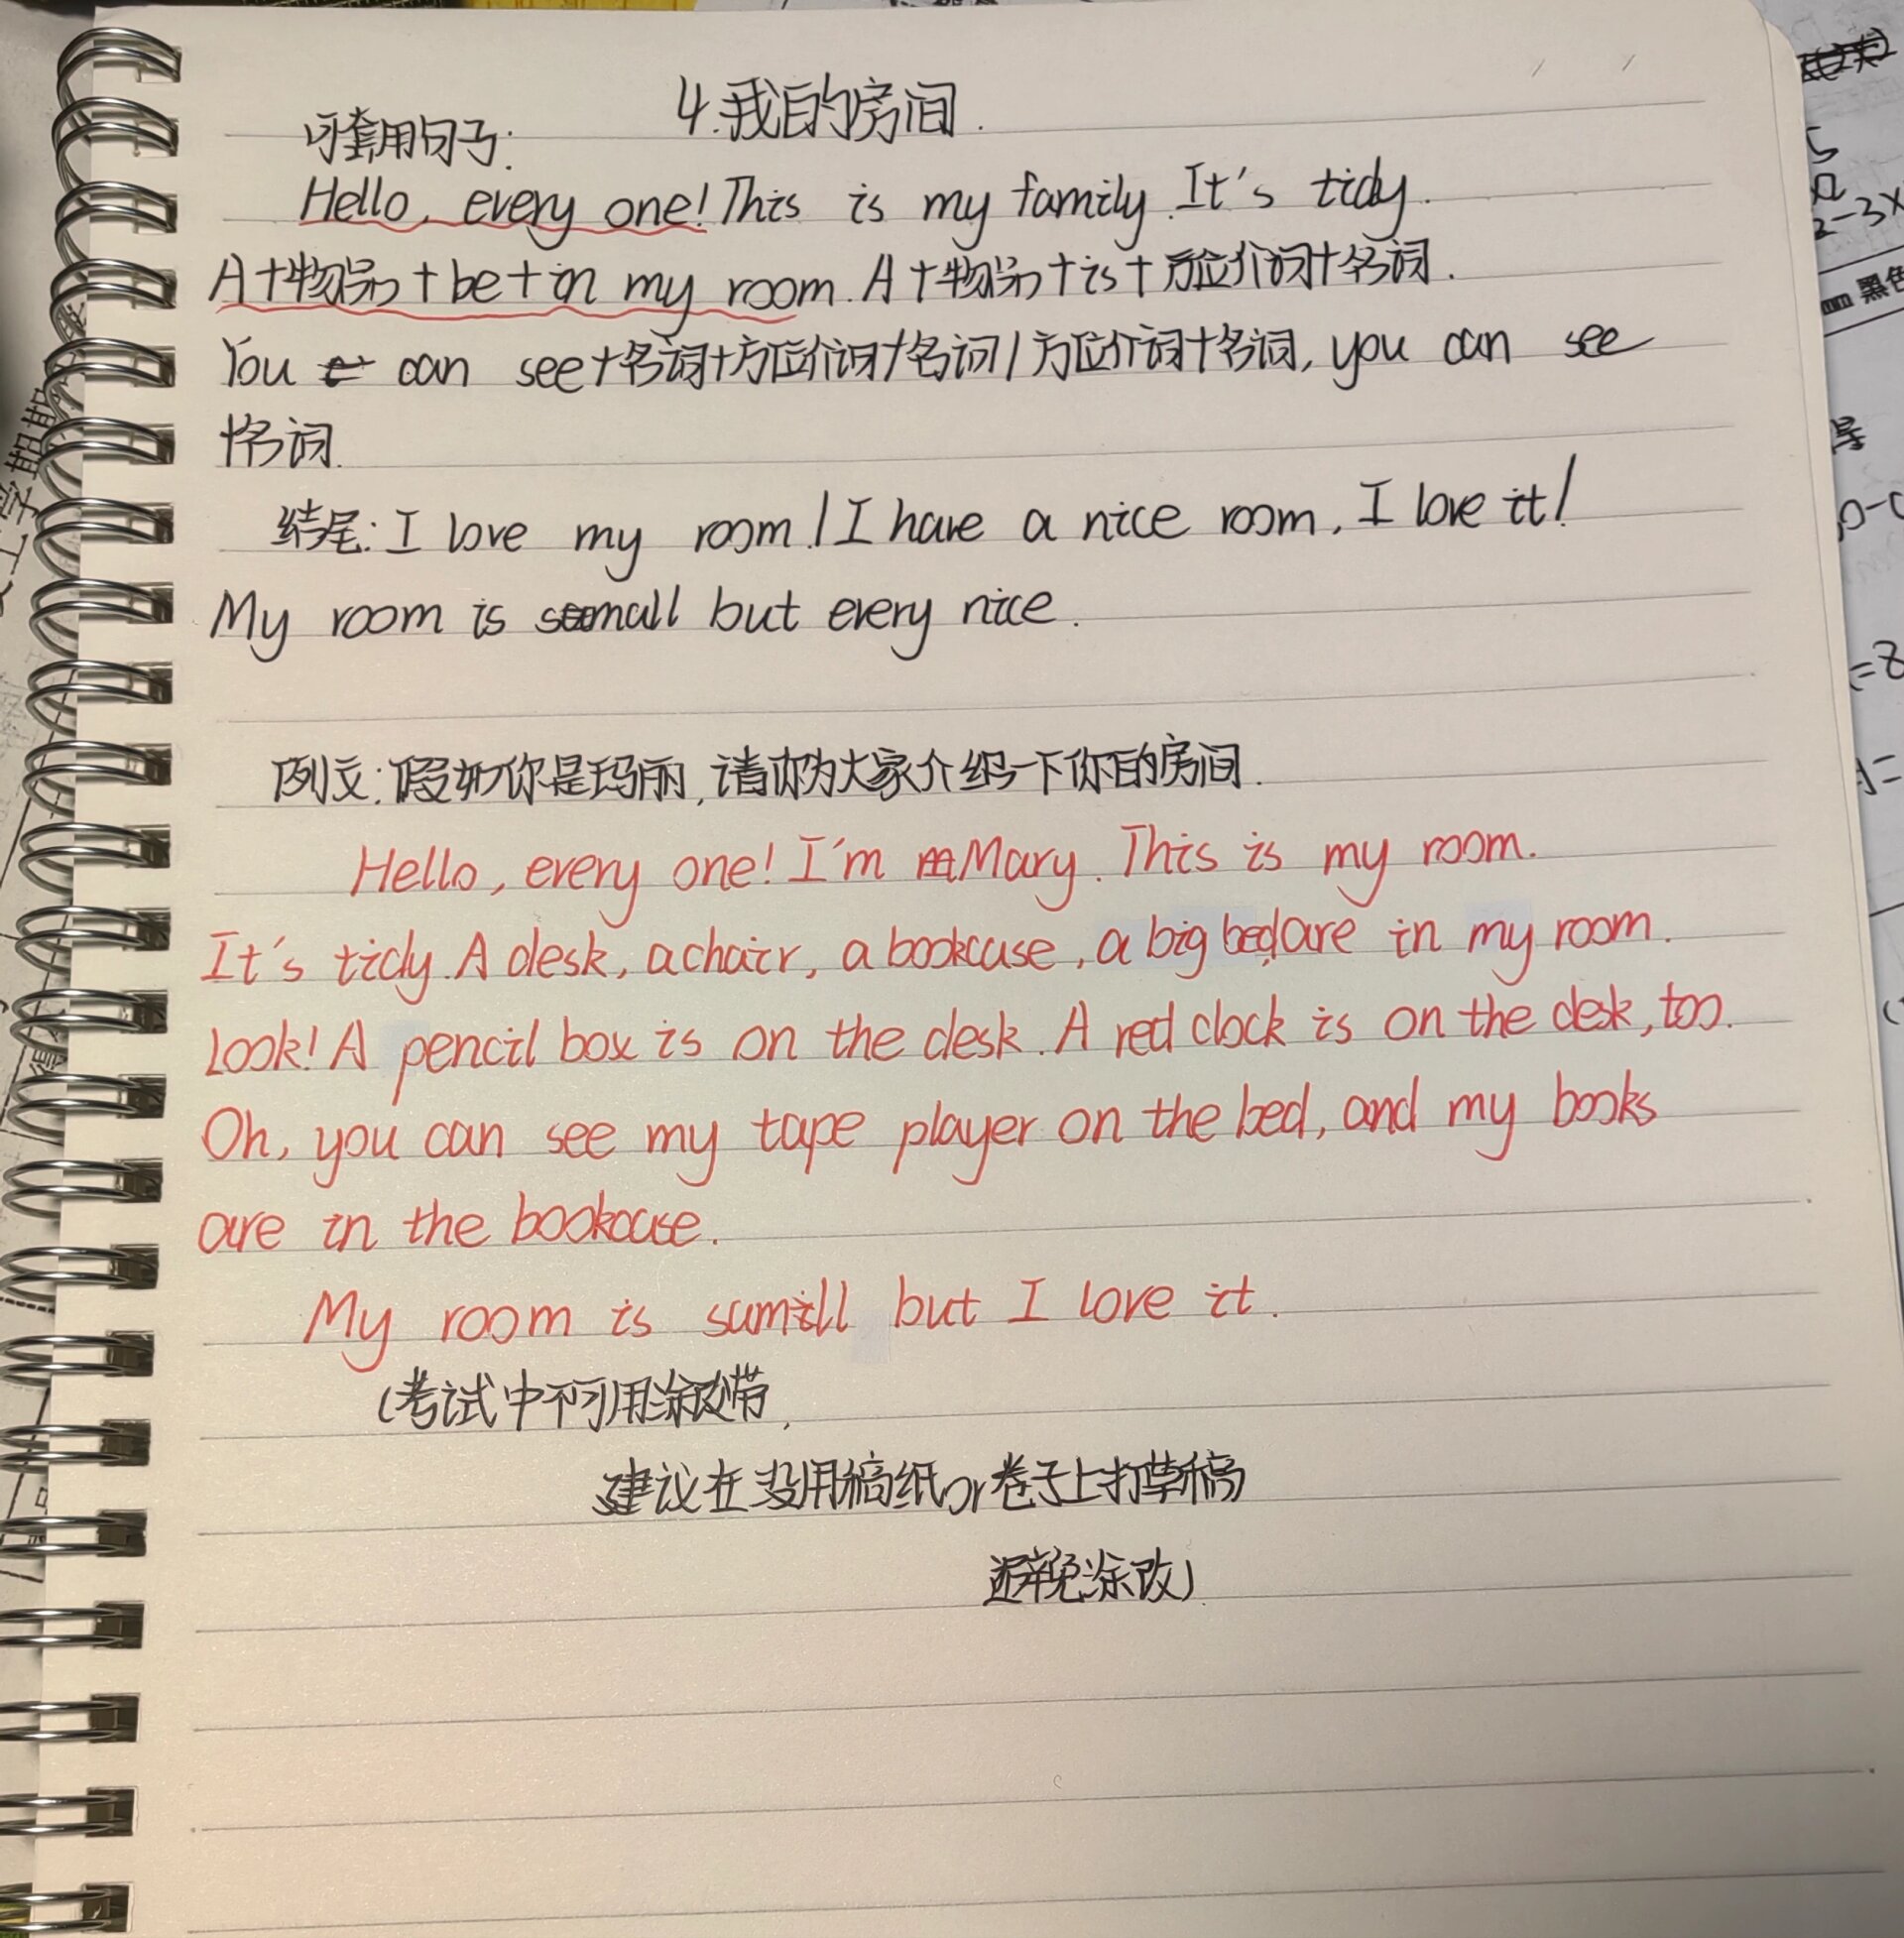 4.我的房间.
可套用句子:
Hello, every one! This is my family. It's tidy.
A+物品+be+in my room. A+物品+is+方位介词+名词.
You can see+名词+方位介词+名词/方位介词+名词, you can see
+名词.
结尾: I love my room! I have a nice room, I love it!
My room is small but every nice.
例文:假如你是玛丽,请你为大家介绍一下你的房间.
Hello, every one! I'm Mary. This is my room.
It's tidy. A desk, a chair, a bookcase, a big bed, are in my room.
Look! A pencil box is on the desk. A red clock is on the desk, too.
Oh, you can see my tape player on the bed, and my books
are in the bookcase.
My room is but I love it.
(考试中不可用涂改带,
建议在没用稿纸or卷子上打草稿
避免涂改).
黑色